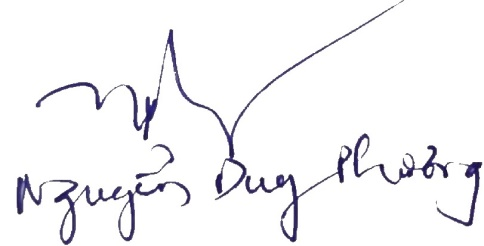 Nguyễn Duy Phương